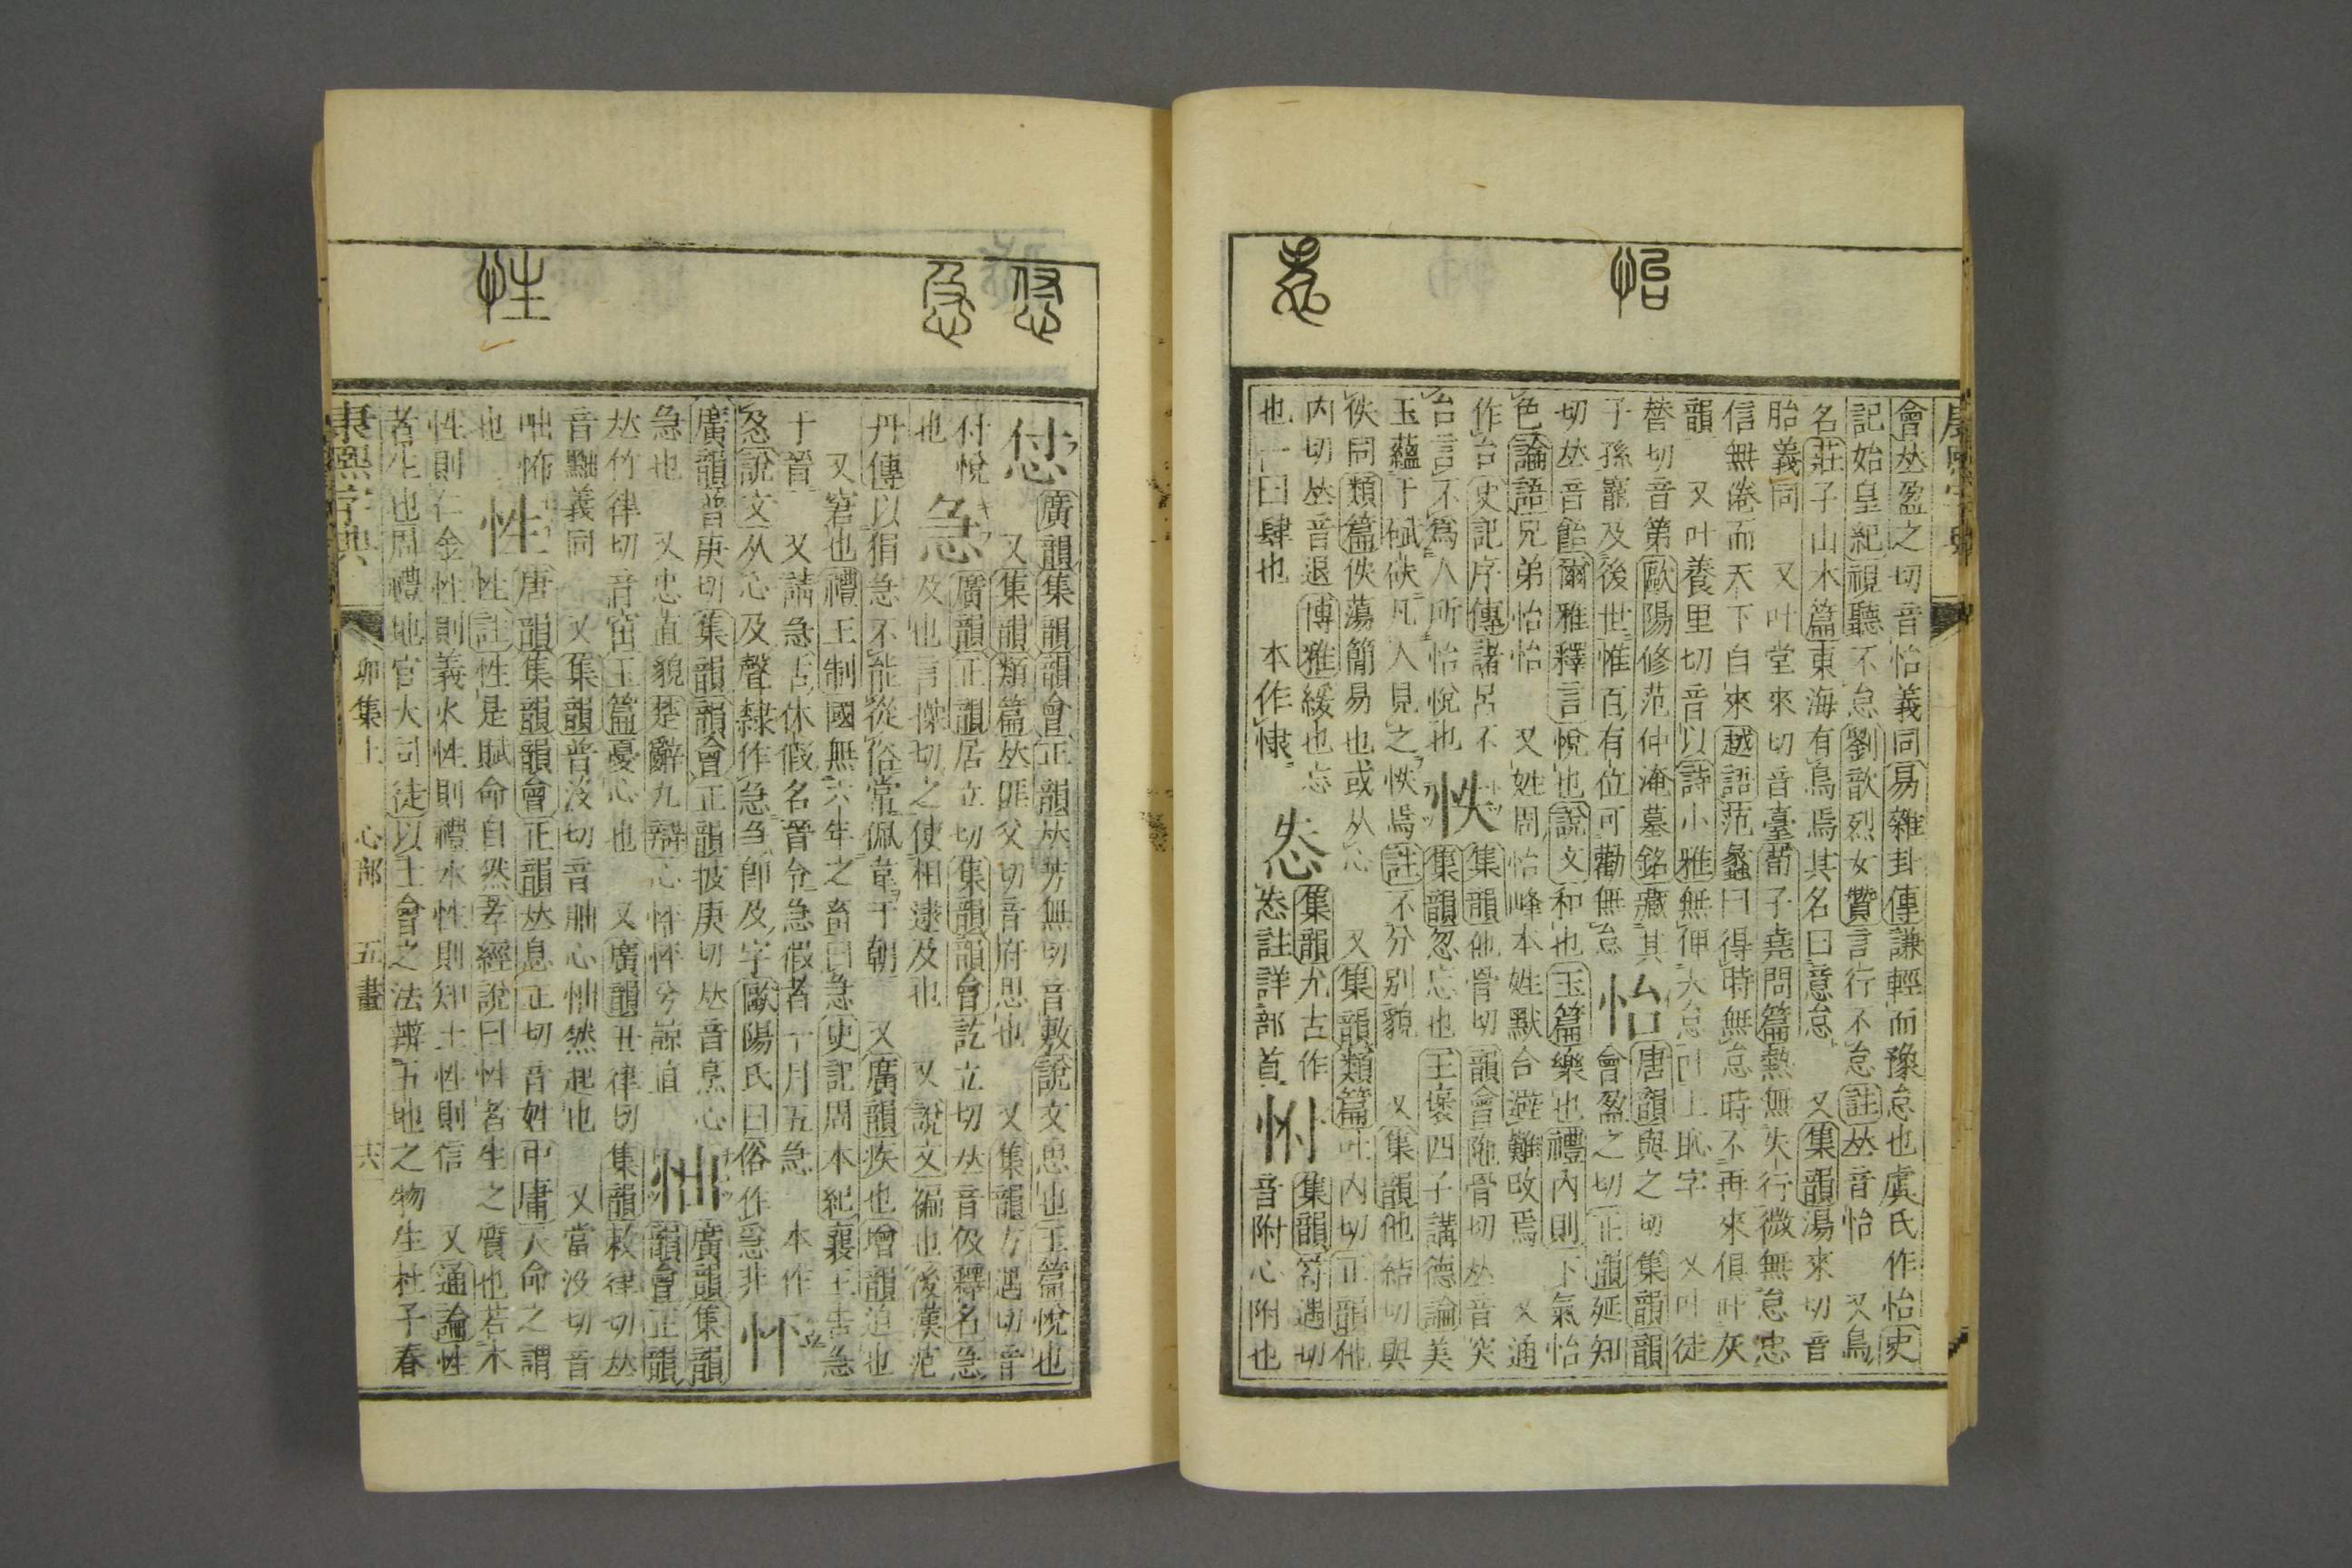 怡
㤅
會𠀤盈之切音怡義同易雜卦傳謙輕而豫怠也虞氏作怡史
記始皇紀視聽不怠劉歆烈女贊言行不怠註𠀤音怡 又鳥
名莊子山木篇東海有鳥焉其名曰意怠 又集韻湯來切音
胎義同 又叶堂來切音臺荀子堯問篇執無失行微無怠忠
信無倦而天下自來越語范蠡曰得時無怠時不再來俱叶灰
韻 又叶養里切音以詩小雅無俾大怠叶上恥字 又叶徒
替切音第歐陽修范仲淹墓銘藏其
子孫寵及後世惟百有位可勸無怠
怡
唐韻與之切集韻韻
會盈之切正韻延知
切𠀤音飴爾雅釋言悅也說文和也玉篇樂也禮內則下氣怡
色論語兄弟怡怡 又姓周怡峰本姓默台避難改焉 又通
作台史記序傳諸呂不
台言不爲人所怡悅也
怢
集韻他骨切韻會陁骨切𠀤音突
集韻忽忘也王褒四子講德論美
玉蘊于碔砆凡人見之怢焉註不分別貌 又集韻他結切與
佚同類篇佚蕩簡易也或从心 又集韻類篇吐內切正韻他
內切𠀤音退博雅緩也忘
也一曰肆也 本作㥆
怣
集韻尤古作
怣註詳部首
怤
集韻符遇切
音附心附也
㤔
急
性
㤔
廣韻集韻韻會正韻𠀤芳無切音敷說文思也玉篇悅也
又集韻類篇𠀤匪父切音府思也 又集韻方遇切音
付悅
也
急
廣韻正韻居立切集韻韻會訖立切𠀤音伋釋名急
及也言操切之使相逮及也 又說文褊也後漢范
丹傳以狷急不能從俗常佩韋于朝 又廣韻疾也增韻迫也
又窘也禮王制國無六年之畜曰急史記周本紀襄王告急
于晉 又請急吿休假名晉令急假者一月五急 本作
㤂說文从心及聲隸作急刍卽及字歐陽氏曰俗作㤂非
怦
廣韻普庚切集韻韻會正韻披庚切𠀤音烹心
急也 又忠直貌楚辭九辯心怦怦兮諒直
怞
廣韻集韻
韻會正韻
𠀤竹律切音窋玉篇憂心也 又廣韻丑律切集韻敕律切𠀤
音黜義同 又集韻普沒切音朏心怞然起也 又當沒切音
咄怖
也
性
唐韻集韻韻會正韻𠀤息正切音姓中庸天命之謂
性註性是賦命自然孝經說曰性者生之質也若木
性則仁金性則義火性則禮水性則知土性則信 又通論性
者生也周禮地官大司徒以土會之法辨五地之物生杜子春
康熙字典
卯集上 心部 五畫 六